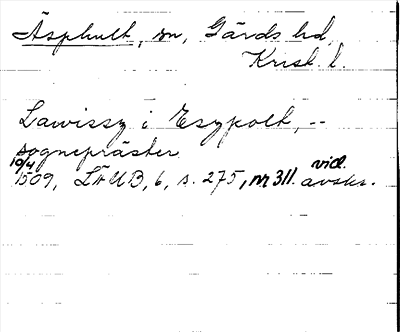 Äsphult, sn, Gärds hd,
Krist. l.
Lawissz i Eszpolt, --
sognepräster
10/4 1509, LÄUB, 6, s. 275, nr 311. vid. avskr.